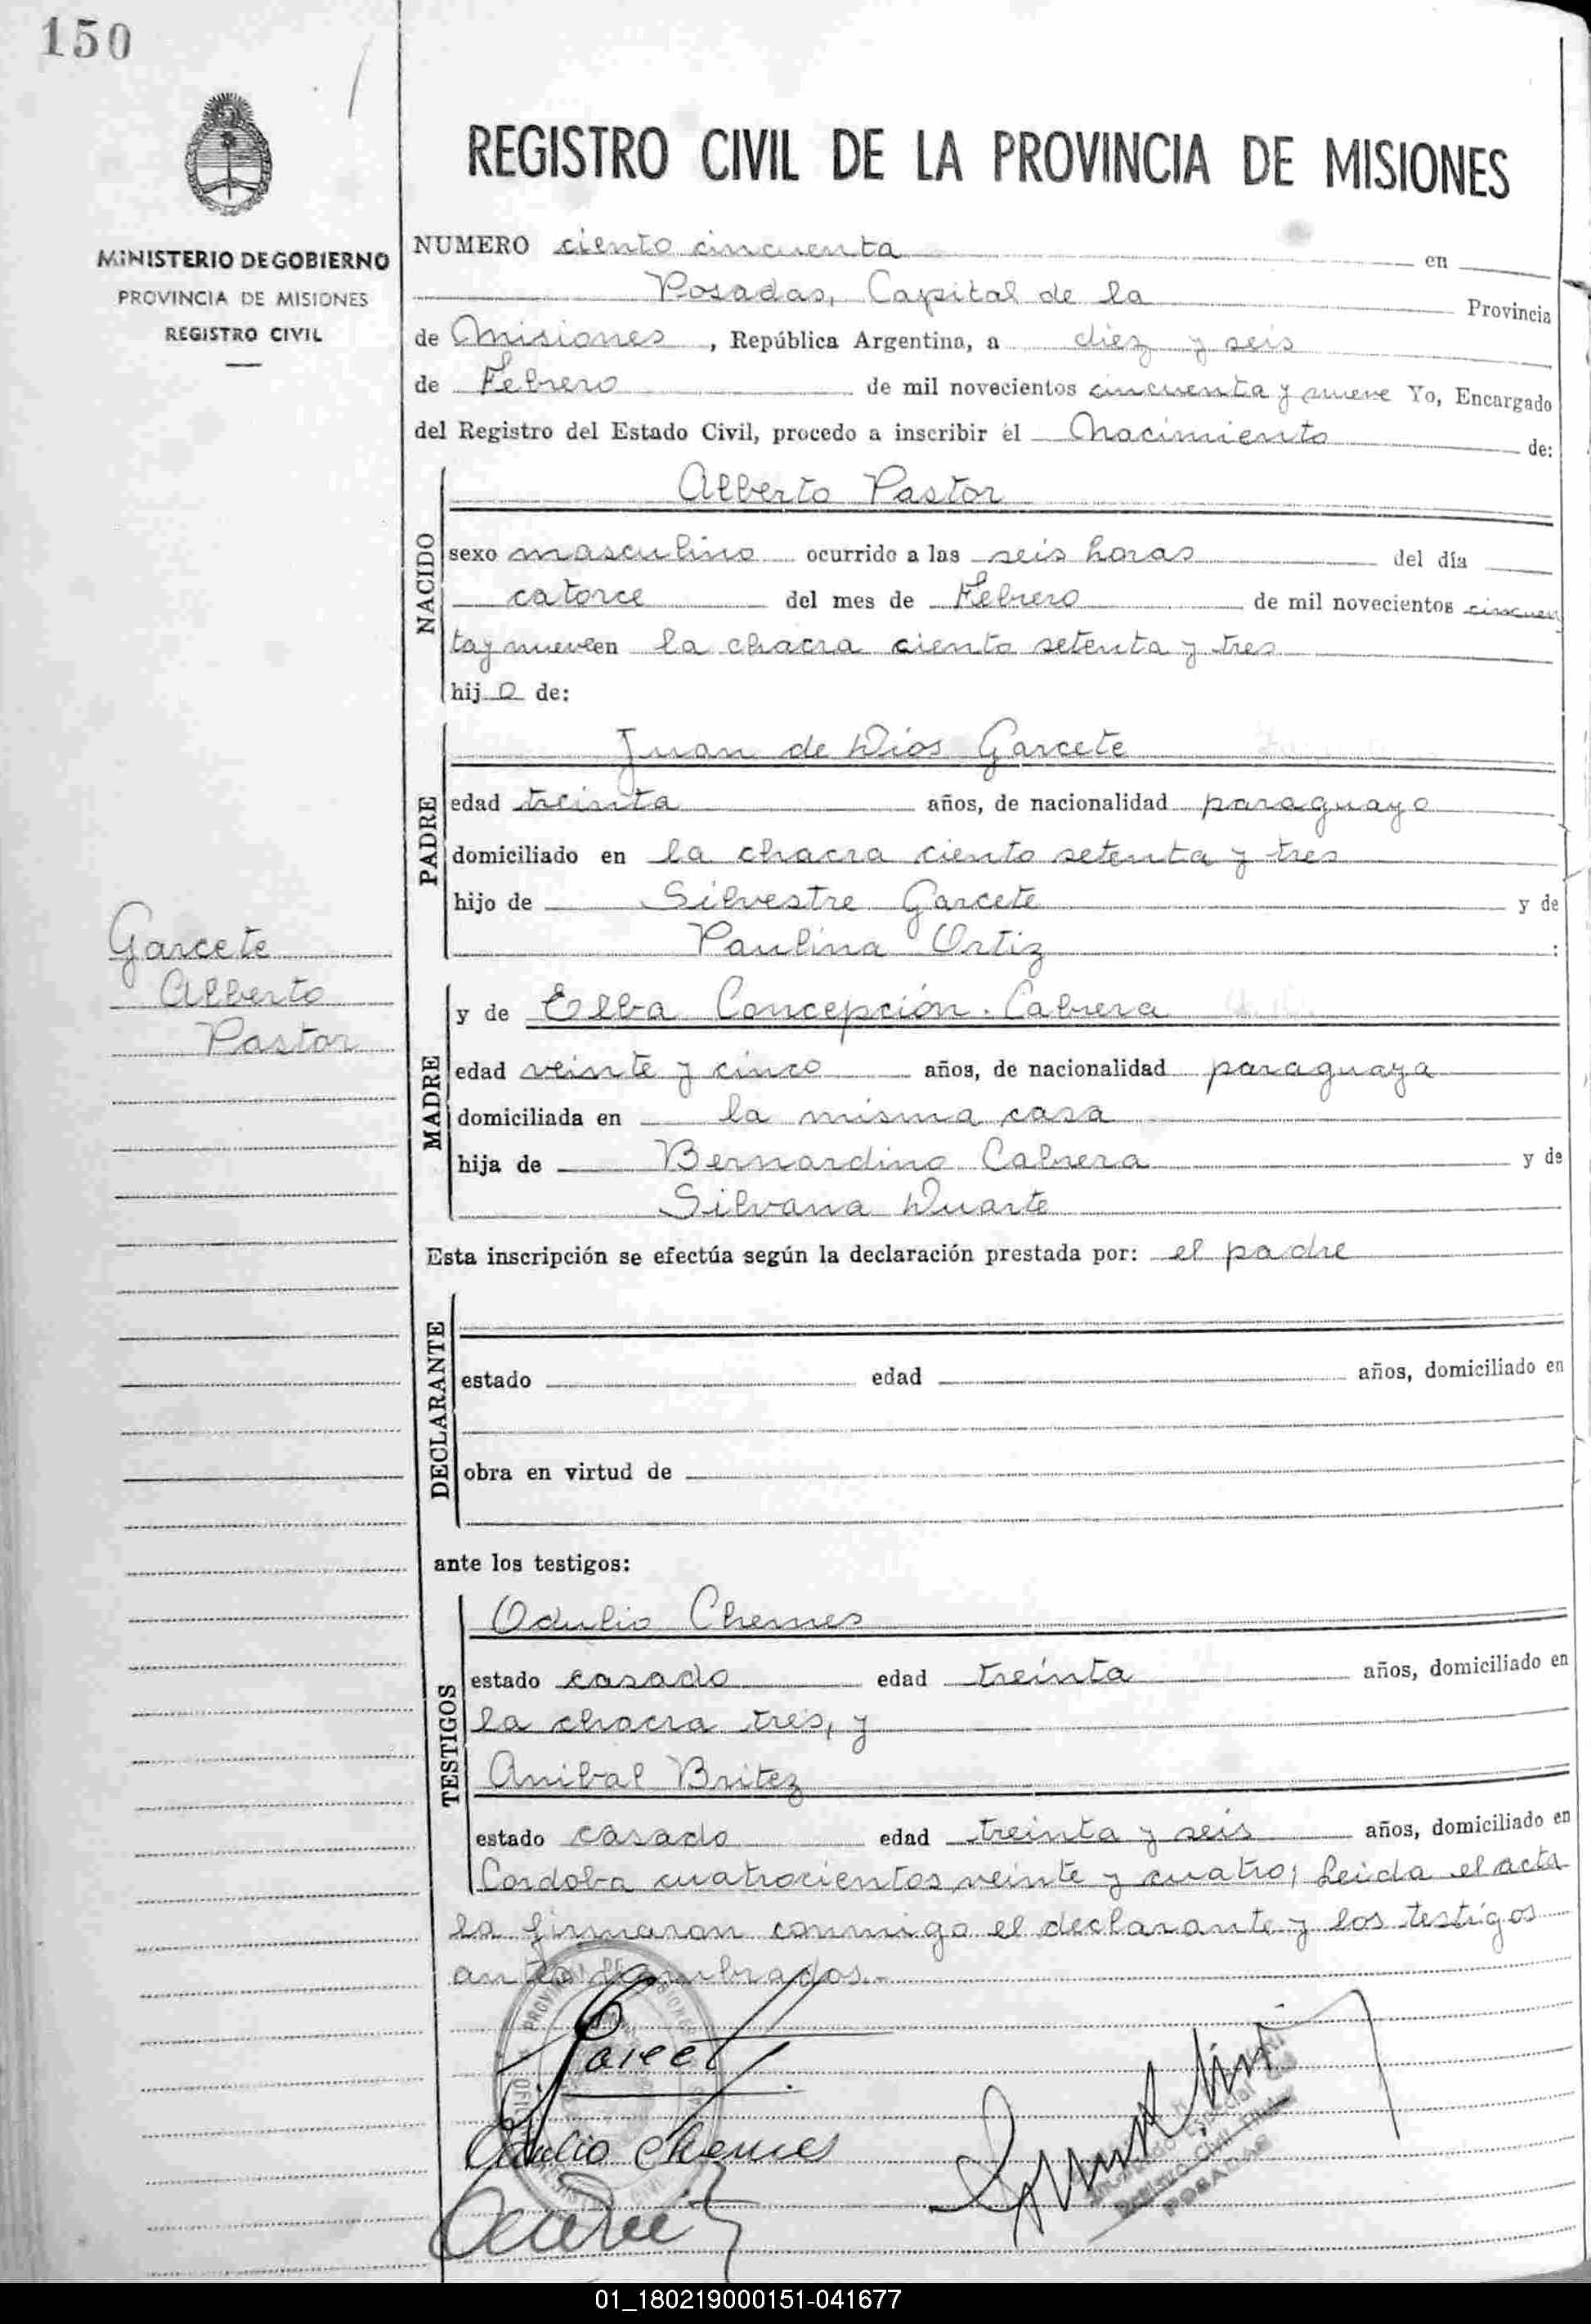 150
MINISTERIO DE GOBIERNO
PROVINCIA DE MISIONES
REGISTRO CIVIL
Garcete
Alberto
Pastor
REGISTRO CIVIL DE LA PROVINCIA DE MISIONES
NUMERO ciento cincuenta en
Posadas, Capital de la Provincia
de Misiones, República Argentina, a diez y seis
de Febrero de mil novecientos cincuenta y nueve Yo, Encargado
del Registro del Estado Civil, procedo a inscribir el Nacimiento de:
NACIDO
Alberto Pastor
sexo masculino ocurrido a las seis horas del día
catorce del mes de Febrero de mil novecientos cincuen
ta y nueve en la chacra ciento setenta y tres
hijo de:
PADRE
Juan de Dios Garcete
edad treinta años, de nacionalidad paraguayo
domiciliado en la chacra ciento setenta y tres
hijo de Silvestre Garcete y de
Paulina Ortiz :
MADRE
y de Elba Concepción Cabrera
edad veinte y cinco años, de nacionalidad paraguaya
domiciliada en la misma casa
hija de Bernardino Cabrera y de
Silvana Duarte
Esta inscripción se efectúa según la declaración prestada por: el padre
DECLARANTE
estado edad años, domiciliado en
obra en virtud de
ante los testigos:
TESTIGOS
Odulio Chemes
estado casado edad treinta años, domiciliado en
la chacra tres, y
Anibal Britez
estado casado edad treinta y seis años, domiciliado en
Cordoba cuatrocientos veinte y cuatro; Leida el acta
la firmaron conmigo el declarante y los testigos
antes nombrados.-
Odulio Chemes
Registro Civil
POSADAS
01_180219000151-041677